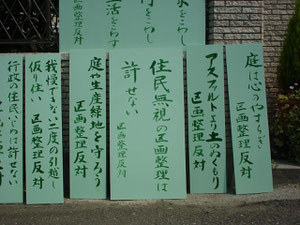 をこわし
をこわし
活をこわす
庭は心のやすらぎ
区画整理反対
アスファルトより土のぬくもり
区画整理反対
住民無視の区画整理は
許せない
区画整理反対
庭や生産緑地を守ろう
区画整理反対
我慢できない二度の引越し
仮り住い 区画整理反対
行政の住民いじめは許せない